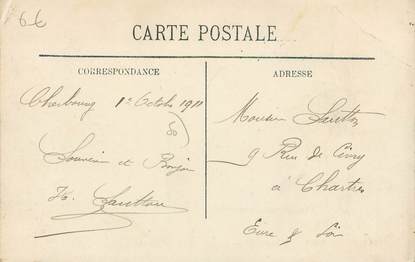 6€
CARTE POSTALE
CORRESPONDANCE
Cherbourg 1er Octobre 1911
Souvenir et Bonjour
ADRESSE
Monsieur
9 Rue de
à Chartres
Eure & Loir